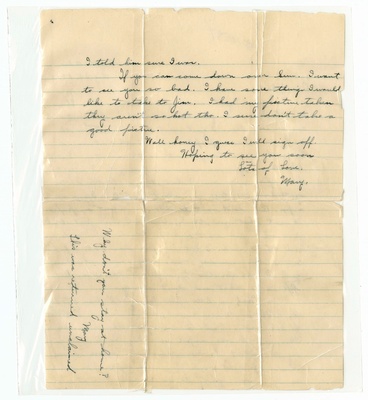 I told him sure I was.
If you can come down over Sun. I want
to see you so bad. I have some thing I would
like to take to Jim. I had my pictire taken
they aren't so hot tho. I sure don't take a
good pictire.
Well honey I guess I will sign off.
Hoping to see you soon
Lots of Love.
Mary.
Why don't you stay at home?
Mary
This was returned unclaimed